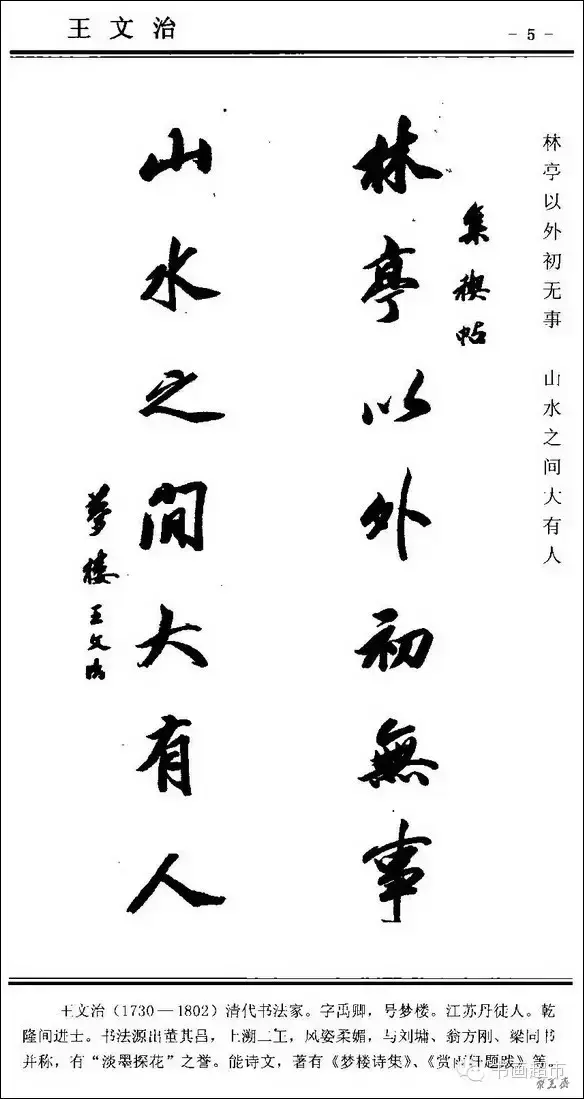 王文治
- 5 -
林亭以外初无事 山水之间大有人
集禊帖
林亭以外初無事
山水之間大有人
梦楼王文治
王文治（1730—1802）清代书法家。字禹卿，号梦楼。江苏丹徒人。乾
隆间进士。书法源出董其昌，上溯二王，风姿柔媚，与刘墉、翁方刚、梁同书
并称，有“淡墨探花”之誉。能诗文，著有《梦楼诗集》、《赏雨轩题跋》等。
书画超市